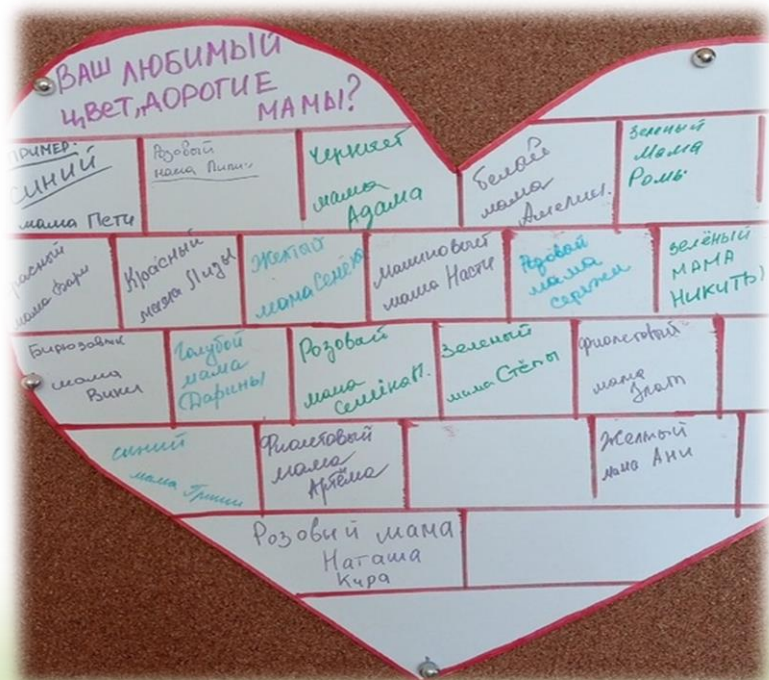 ВАШ ЛЮБИМЫЙ
ЦВЕТ, ДОРОГИЕ
МАМЫ?
ПРИМЕР:
СИНИЙ
мама Пети
Розовый
мама
Черный
мама
Адама
белый
мама
Амелии
зеленый
Мама
Ромы
мама
Красный
мама Лизы
Желтый
мама Семёна
Малиновый
мама Насти
Розовый
мама
Сережи
зелёный
МАМА
НИКИТЫ
Бирюзовый
мама
Вики
Голубой
мама
Дарины
Розовый
мама
Семёна П.
Зеленый
мама Стёпы
Фиолетовый
мама
Злат
синий
мама Гриши
Фиолетовый
мама
Артёма
Жёлтый
мама Ани
Розовый мама
Наташа
Кира